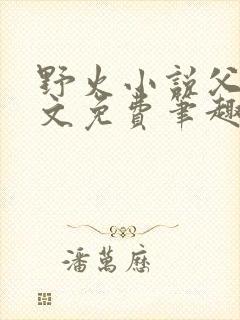 野火小说父
文免费笔趣
潘萬歷